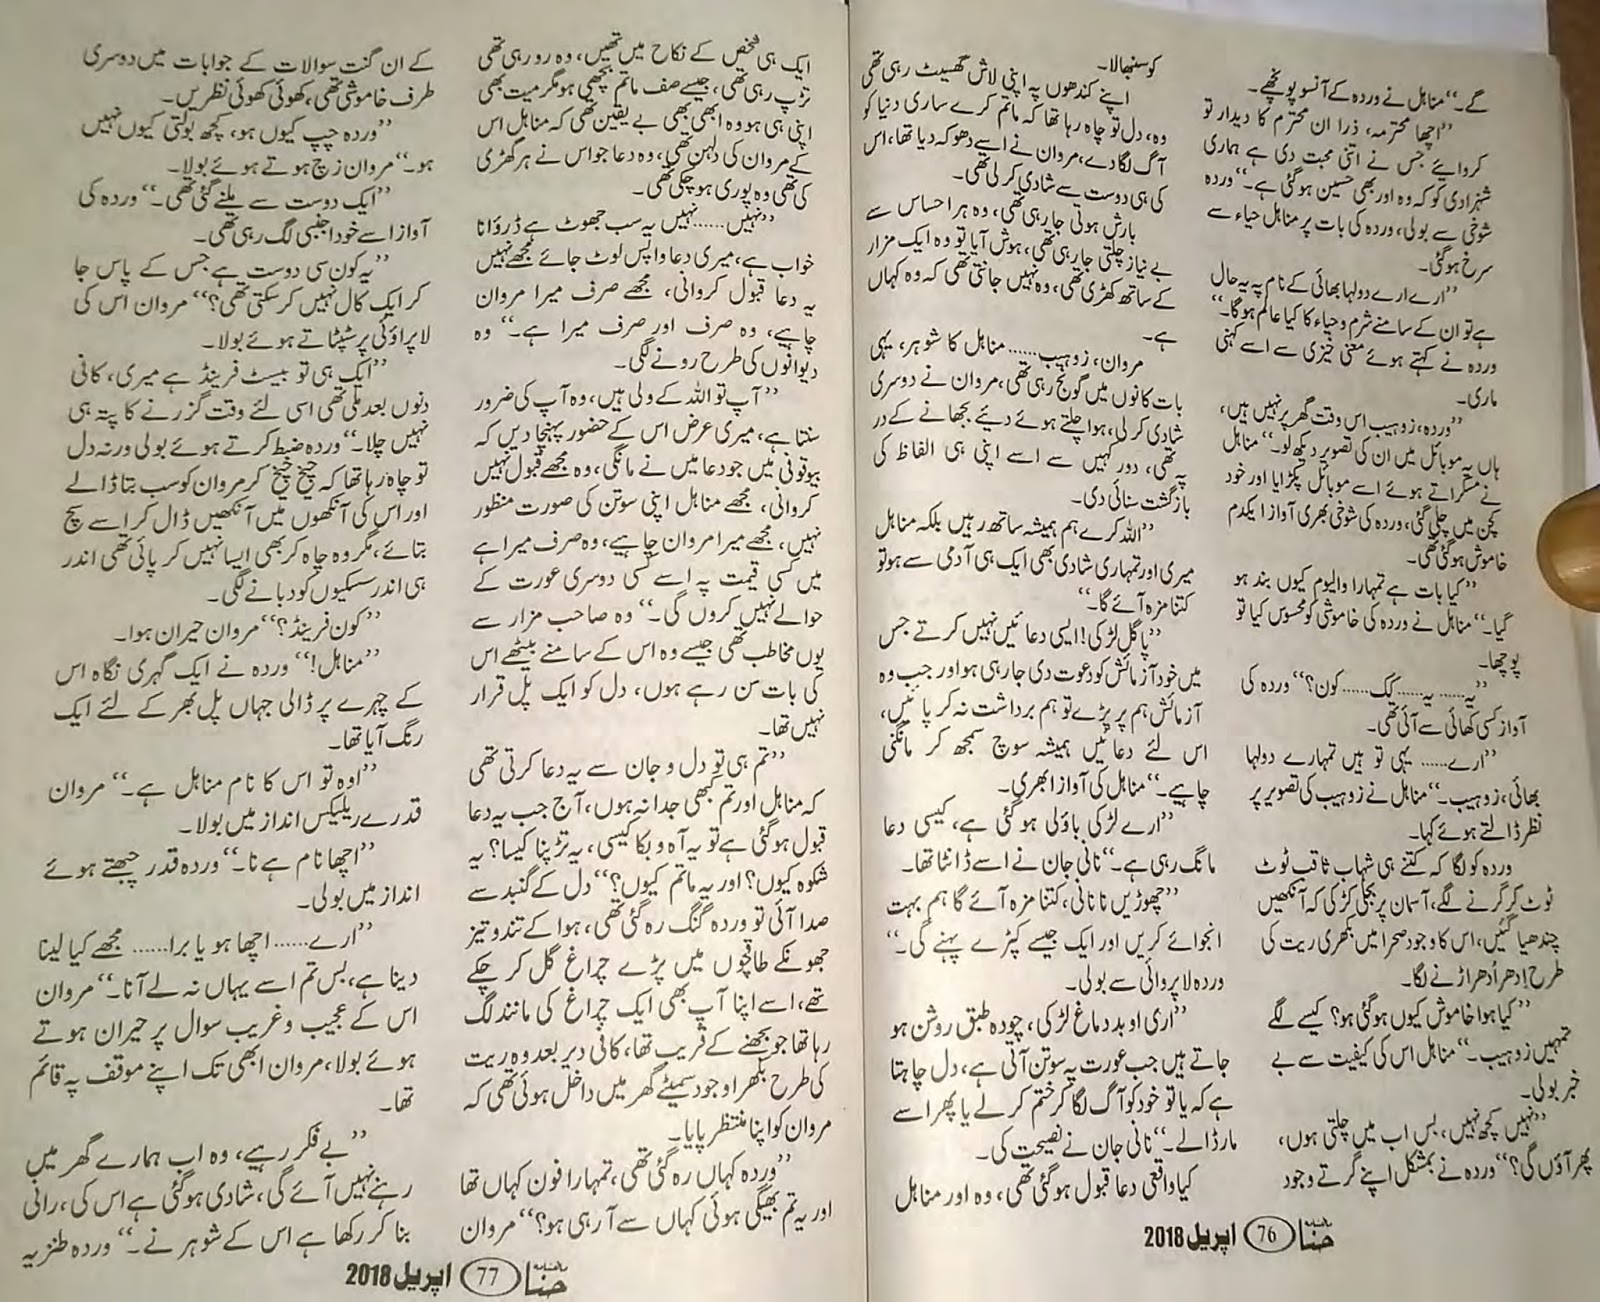 گے۔“ مناہل نے وردہ کے آنسو پونچھے۔
”اچھا محترمہ، ذرا ان محترم کا دیدار تو
کروائیے جس نے اتنی محبت دی ہے ہماری
شہزادی کو کہ وہ اور بھی حسین ہو گئی ہے۔“ وردہ
شوخی سے بولی، وردہ کی بات پر مناہل حیاء سے
سرخ ہو گئی۔
”ارے ارے دولہا بھائی کے نام پہ یہ حال
ہے تو ان کے سامنے شرم و حیاء کا کیا عالم ہو گا۔“
وردہ نے کہتے ہوئے معنی خیزی سے اسے کہنی
ماری۔
”وردہ، زوہیب اس وقت گھر پر نہیں ہیں،
ہاں یہ موبائل میں ان کی تصویر دیکھ لو۔“ مناہل
نے مسکراتے ہوئے اسے موبائل پکڑایا اور خود
کچن میں چلی گئی، وردہ کی شوخی بھری آواز ایکدم
خاموش ہو گئی تھی۔
”کیا بات ہے تمہارا والیوم کیوں بند ہو
گیا۔“ مناہل نے وردہ کی خاموشی کو محسوس کیا تو
پوچھا۔
”یہ...... یہ...... کک...... کون؟“ وردہ کی
آواز کسی کھائی سے آئی تھی۔
”ارے...... یہی تو ہیں تمہارے دولہا
بھائی، زوہیب۔“ مناہل نے زوہیب کی تصویر پر
نظر ڈالتے ہوئے کہا۔
وردہ کو لگا کہ کتنے ہی شہاب ثاقب ٹوٹ
ٹوٹ کر گرنے لگے، آسمان پر بجلی کڑکی کہ آنکھیں
چندھیا گئیں، اس کا وجود صحرا میں بکھری ریت کی
طرح اِدھر اُدھر اڑنے لگا۔
”کیا ہوا خاموش کیوں ہو گئی ہو؟ کیسے لگے
تمہیں زوہیب۔“ مناہل اس کی کیفیت سے بے
خبر بولی۔
”نہیں کچھ نہیں، بس اب میں چلتی ہوں،
پھر آؤں گی؟“ وردہ نے بمشکل اپنے گرتے وجود
کو سنبھالا۔
اپنے کندھوں پہ اپنی لاش گھسیٹ رہی تھی
وہ، دل تو چاہ رہا تھا کہ ماتم کرے ساری دنیا کو
آگ لگا دے، مروان نے اسے دھوکہ دیا تھا، اس
کی ہی دوست سے شادی کر لی تھی۔
بارش ہوتی جا رہی تھی، وہ ہر احساس سے
بے نیاز چلتی جا رہی تھی، ہوش آیا تو وہ ایک مزار
کے ساتھ کھڑی تھی، وہ نہیں جانتی تھی کہ وہ کہاں
ہے۔
مروان، زوہیب...... مناہل کا شوہر، یہی
بات کانوں میں گونج رہی تھی، مروان نے دوسری
شادی کر لی، ہوا جلتے ہوئے دیئے بجھانے کے در
پہ تھی، دور کہیں سے اسے اپنی ہی الفاظ کی
بازگشت سنائی دی۔
”اللہ کرے ہم ہمیشہ ساتھ رہیں بلکہ مناہل
میری اور تمہاری شادی بھی ایک ہی آدمی سے ہو تو
کتنا مزہ آئے گا۔“
”پاگل لڑکی! ایسی دعائیں نہیں کرتے جس
میں خود آزمائش کو دعوت دی جا رہی ہو اور جب وہ
آزمائش ہم پر پڑے تو ہم برداشت نہ کر پائیں،
اس لئے دعائیں ہمیشہ سوچ سمجھ کر مانگنی
چاہیے۔“ مناہل کی آواز ابھری۔
”ارے لڑکی باؤلی ہو گئی ہے، کیسی دعا
مانگ رہی ہے۔“ نانی جان نے اسے ڈانٹا تھا۔
”چھوڑیں نا نانی، کتنا مزہ آئے گا ہم بہت
انجوائے کریں اور ایک جیسے کپڑے پہنے گی۔“
وردہ لاپروائی سے بولی۔
”اری او بد دماغ لڑکی، چودہ طبق روشن ہو
جاتے ہیں جب عورت پہ سوتن آتی ہے، دل چاہتا
ہے کہ یا تو خود کو آگ لگا کر ختم کر لے یا پھر اسے
مار ڈالے۔“ نانی جان نے نصیحت کی۔
کیا واقعی دعا قبول ہو گئی تھی، وہ اور مناہل
ماہنامہ حنا 76 اپریل 2018
ایک ہی شخص کے نکاح میں تھیں، وہ رو رہی تھی
تڑپ رہی تھی، جیسے صف ماتم بچھی ہو مگر میت بھی
اپنی ہی ہو وہ ابھی بھی بے یقین تھی کہ مناہل اس
کے مروان کی دلہن تھی، وہ دعا جو اس نے ہر گھڑی
کی تھی وہ پوری ہو چکی تھی۔
”نہیں...... نہیں یہ سب جھوٹ ہے ڈرؤانا
خواب ہے، میری دعا واپس لوٹ جائے مجھے نہیں
یہ دعا قبول کروانی، مجھے صرف میرا مروان
چاہیے، وہ صرف اور صرف میرا ہے۔“ وہ
دیوانوں کی طرح رونے لگی۔
”آپ تو اللہ کے ولی ہیں، وہ آپ کی ضرور
سنتا ہے، میری عرض اس کے حضور پہنچا دیں کہ
بیوقوفی میں جو دعا میں نے مانگی، وہ مجھے قبول نہیں
کروانی، مجھے مناہل اپنی سوتن کی صورت منظور
نہیں، مجھے میرا مروان چاہیے، وہ صرف میرا ہے
میں کسی قیمت پہ اسے کسی دوسری عورت کے
حوالے نہیں کروں گی۔“ وہ صاحب مزار سے
یوں مخاطب تھی جیسے وہ اس کے سامنے بیٹھے اس
کی بات سن رہے ہوں، دل کو ایک پل قرار
نہیں تھا۔
”تم ہی تو دل و جان سے یہ دعا کرتی تھی
کہ مناہل اور تم کبھی جدا نہ ہوں، آج جب یہ دعا
قبول ہو گئی ہے تو یہ آہ و بکا کیسی، یہ تڑپنا کیسا؟ یہ
شکوہ کیوں؟ اور یہ ماتم کیوں؟“ دل کے گنبد سے
صدا آئی تو وردہ گنگ رہ گئی تھی، ہوا کے تند و تیز
جھونکے طاقچوں میں پڑے چراغ گل کر چکے
تھے، اسے اپنا آپ بھی ایک چراغ کی مانند لگ
رہا تھا جو بجھنے کے قریب تھا، کافی دیر بعد وہ ریت
کی طرح بکھرا وجود سمیٹے گھر میں داخل ہوئی تھی کہ
مروان کو اپنا منتظر پایا۔
”وردہ کہاں رہ گئی تھی، تمہارا فون کہاں تھا
اور یہ تم بھیگی ہوئی کہاں سے آ رہی ہو؟“ مروان
کے ان گنت سوالات کے جوابات میں دوسری
طرف خاموشی تھی، کھوئی کھوئی نظریں۔
”وردہ چپ کیوں ہو، کچھ بولتی کیوں نہیں
ہو۔“ مروان زچ ہوتے ہوئے بولا۔
”ایک دوست سے ملنے گئی تھی۔“ وردہ کی
آواز اسے خود اجنبی لگ رہی تھی۔
”یہ کون سی دوست ہے جس کے پاس جا
کر ایک کال نہیں کر سکتی تھی؟“ مروان اس کی
لاپراوئی پر سٹپٹاتے ہوئے بولا۔
”ایک ہی تو بیسٹ فرینڈ ہے میری، کافی
دنوں بعد ملی تھی اسی لئے وقت گزرنے کا پتہ ہی
نہیں چلا۔“ وردہ ضبط کرتے ہوئے بولی ورنہ دل
تو چاہ رہا تھا کہ چیخ چیخ کر مروان کو سب بتا ڈالے
اور اس کی آنکھوں میں آنکھیں ڈال کر اسے سچ
بتائے، مگر وہ چاہ کر بھی ایسا نہیں کر پائی تھی اندر
ہی اندر سسکیوں کو دبانے لگی۔
”کون فرینڈ؟“ مروان حیران ہوا۔
”مناہل!“ وردہ نے ایک گہری نگاہ اس
کے چہرے پر ڈالی جہاں پل بھر کے لئے ایک
رنگ آیا تھا۔
”اوہ تو اس کا نام مناہل ہے۔“ مروان
قدرے ریلیکس انداز میں بولا۔
”اچھا نام ہے نا۔“ وردہ قدر چبھتے ہوئے
انداز میں بولی۔
”ارے...... اچھا ہو یا برا...... مجھے کیا لینا
دینا ہے، بس تم اسے یہاں نہ لے آنا۔“ مروان
اس کے عجیب و غریب سوال پر حیران ہوتے
ہوئے بولا، مروان ابھی تک اپنے موقف پہ قائم
تھا۔
”بے فکر رہیے، وہ اب ہمارے گھر میں
رہنے نہیں آئے گی، شادی ہو گئی ہے اس کی، رانی
بنا کر رکھا ہے اس کے شوہر نے۔“ وردہ طنزیہ
ماہنامہ حنا 77 اپریل 2018